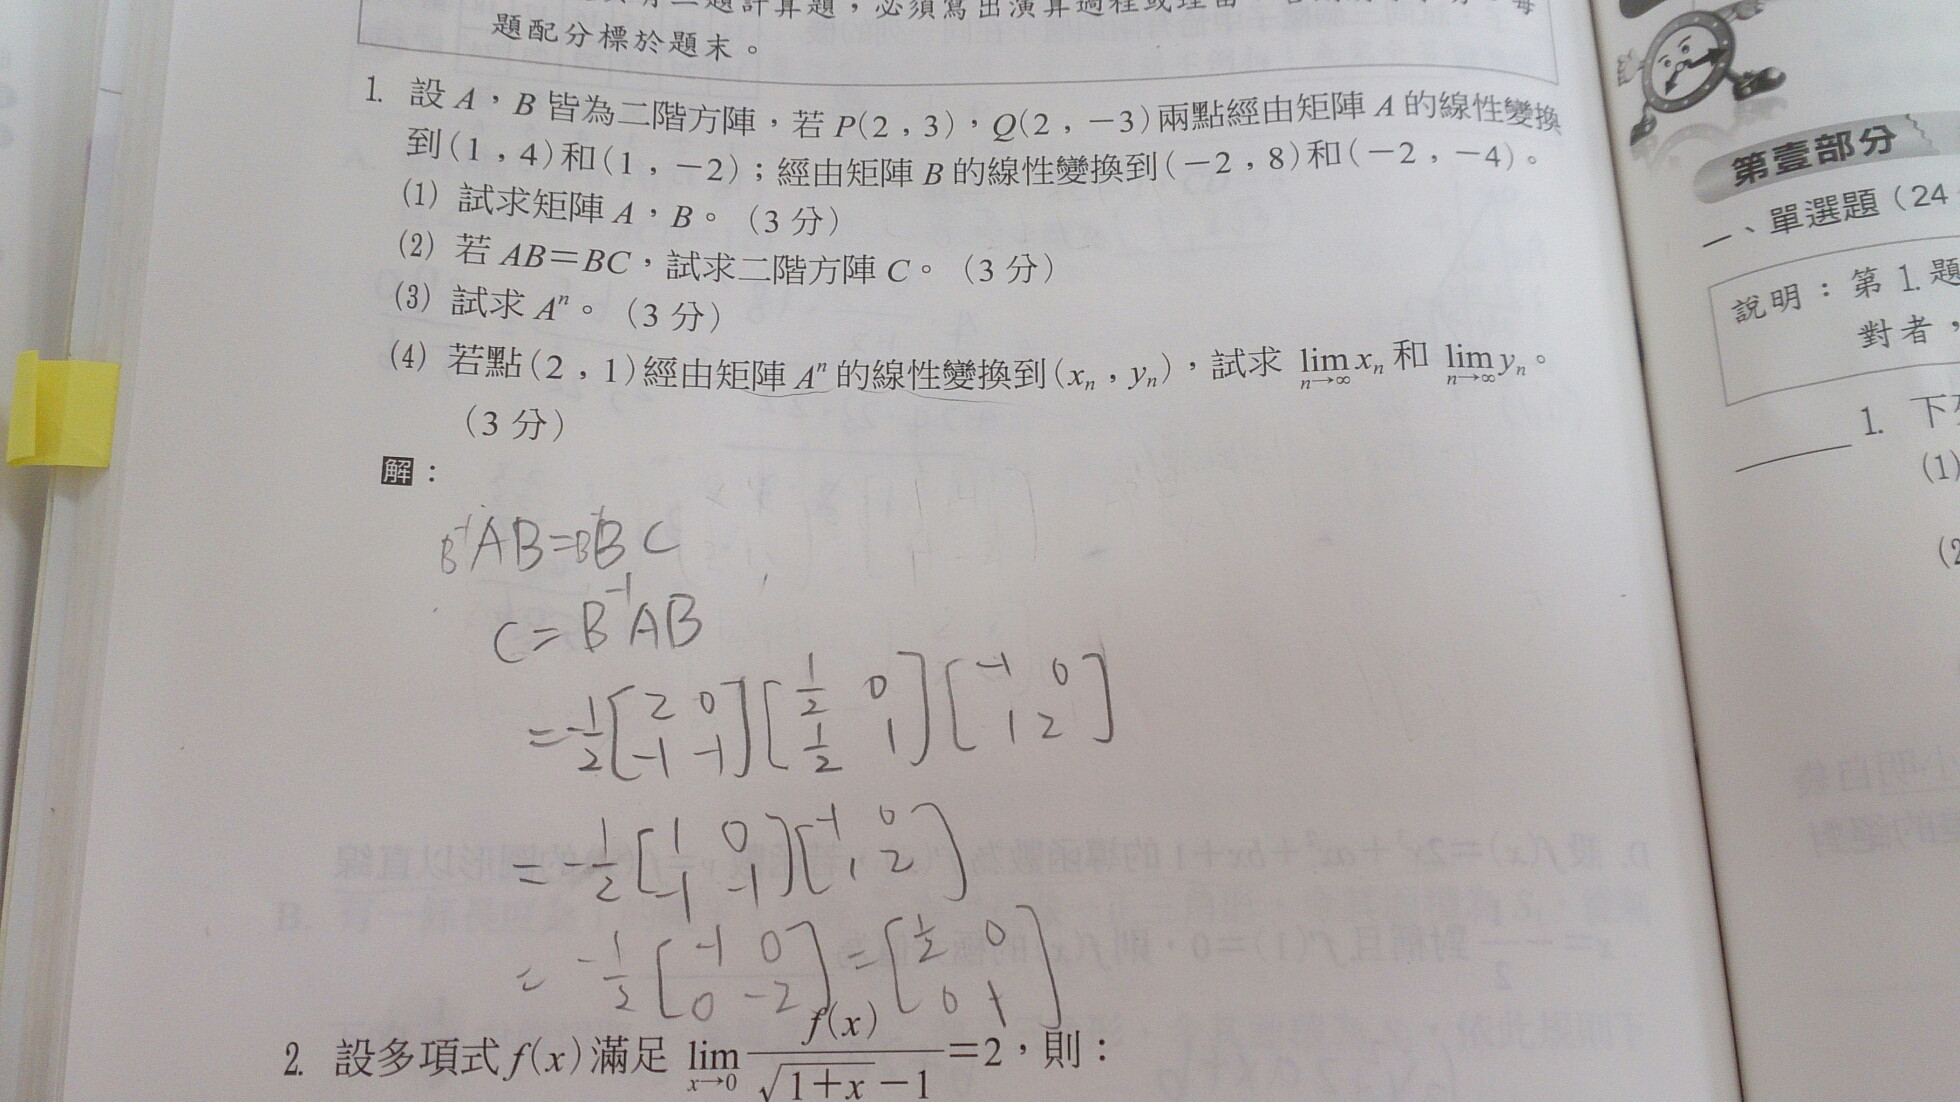 題配分標於題末。
1. 設 A，B 皆為二階方陣，若 P(2，3)，Q(2，－3)兩點經由矩陣 A 的線性變換
到(1，4)和(1，－2)；經由矩陣 B 的線性變換到(－2，8)和(－2，－4)。
(1) 試求矩陣 A，B。（3 分）
(2) 若 AB＝BC，試求二階方陣 C。（3 分）
(3) 試求 Aⁿ。（3 分）
(4) 若點(2，1)經由矩陣 Aⁿ 的線性變換到(xₙ，yₙ)，試求 lim n→∞ xₙ 和 lim n→∞ yₙ。
（3 分）
解：
B⁻¹AB=B⁻¹BC
C=B⁻¹AB
=-1/2[2 0; -1 -1][1/2 0; 1/2 1][-1 0; 1 2]
=-1/2[1 0; -1 -1][-1 0; 1 2]
=-1/2[-1 0; 0 -2]=[1/2 0; 0 1]
2. 設多項式 f(x)滿足 lim x→0 f(x)/(√(1+x)－1)＝2，則：
第壹部分
一、單選題（24
說明：第 1. 題
對者，
1. 下
(1)
(2